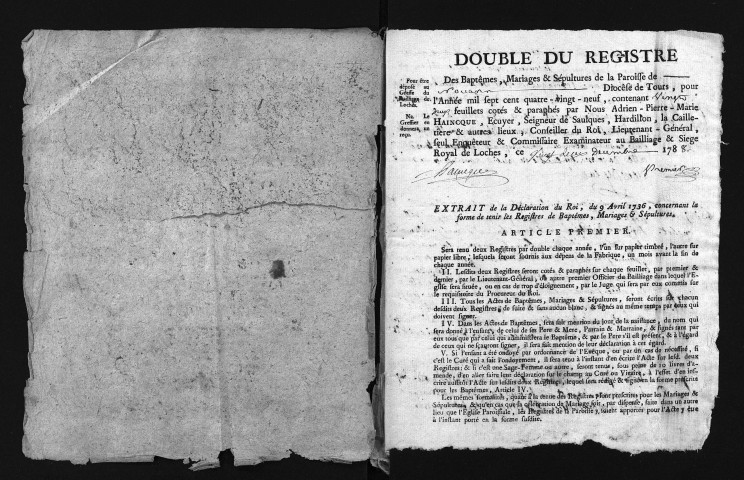 DOUBLE DU REGISTRE
Pour être
déposé au
Greffe du
Bailliage de
Loches.
Na. Le
Greffier en
donnera un
reçu.
Des Baptêmes, Mariages & Sépultures de la Paroisse de
Diocèse de Tours, pour
l'Année mil sept cent quatre-vingt-neuf, contenant Vingt
feuillets cotés & paraphés par Nous Adrien-Pierre-Marie
HAINCQUE, Ecuyer, Seigneur de Saulques, Hardillon, la Caille-
tiere & autres lieux; Conseiller du Roi, Lieutenant-Général,
seul Enquêteur & Commissaire Examinateur au Bailliage & Siege
Royal de Loches, ce decembre 1788.
haincque Premier
EXTRAIT de la Déclaration du Roi, du 9 Avril 1736, concernant la
forme de tenir les Registres de Baptêmes, Mariages & Sépultures.
ARTICLE PREMIER.
Sera tenu deux Registres par double chaque année, l'un sur papier timbré, l'autre sur
papier libre, lesquels seront fournis aux dépens de la Fabrique, un mois avant la fin de
chaque année.
II. Lesdits deux Registres seront cotés & paraphés sur chaque feuillet, par premier &
dernier, par le Lieutenant-Général, ou autre premier Officier du Bailliage dans lequel l'E-
glise sera située, ou en cas de trop d'éloignement, par le Juge qui sera par eux commis sur
le requisitoire du Procureur du Roi.
III. Tous les Actes de Baptêmes, Mariages & Sépultures, seront écrits sur chacun
desdits deux Registres, de suite & sans aucun blanc, & signés au même temps par ceux qui
doivent signer.
IV. Dans les Actes de Baptêmes, sera fait mention du jour de la naissance, du nom qui
sera donné à l'enfant, de celui de ses Pere & Mere, Parrain & Marraine, & signés tant par
eux tous que par celui qui administrera le Baptême, & par le Pere s'il est présent, & à l'égard
de ceux qui ne sçauront signer, il sera fait mention de leur déclaration à cet égard.
V. Si l'enfant a été ondoyé par ordonnance de l'Evêque, ou par un cas de nécessité, si
c'est le Curé qui a fait l'ondoyement, il sera tenu à l'instant d'en écrire l'Acte sur lesd. deux
Registres; & si c'est une Sage-Femme ou autre, seront tenus, sous peine de 10 livres d'a-
mende, d'en aller faire leur déclaration sur le champ au Curé ou Vicaire, à l'effet d'en ins-
crire aussitôt l'Acte sur lesdits deux Registres, lequel sera rédigé & signé en la forme prescrite
pour les Baptêmes, Article IV.
Les mêmes formalités, quant à la tenue des Registres, sont prescrites pour les Mariages &
Sépultures, & qu'en cas que la célébration de Mariage soit, par dispense, faite dans un autre
lieu que l'Eglise Paroissiale, les Registres de la Paroisse y soient apportés pour l'Acte y être
à l'instant porté en la forme susdite.